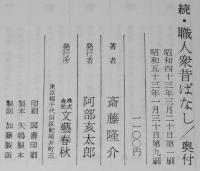 続・職人衆昔ばなし/奥付
昭和四十三年三月二十日第一刷
昭和五十三年一月三十日第九刷
一二〇〇円
著者 斎藤隆介
発行者 阿部亥太郎
発行所 株式会社 文藝春秋
東京都千代田区紀尾井町三
印刷 図書印刷
製本 矢嶋製本
製函 加藤製函